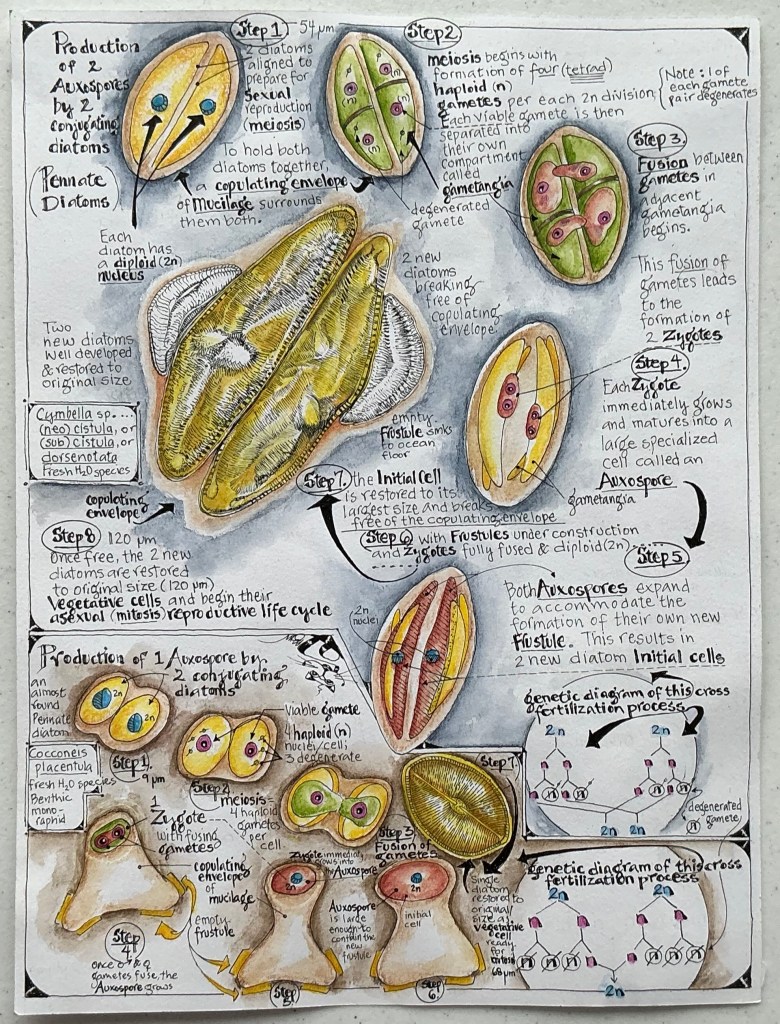 Production
of 2
Auxospores
by 2
conjugating
diatoms
(Pennate
Diatoms)
Step 1
54 µm
2 diatoms
aligned to
prepare for
sexual
reproduction
(meiosis)
To hold both
diatoms together,
a copulating envelope
of Mucilage surrounds
them both.
Each
diatom has
a diploid (2n)
nucleus
Step 2
meiosis begins with
formation of four (tetrad)
haploid (n)
gametes per each 2n division.
Each viable gamete is then
separated into
their own
compartment
called
gametangia
degenerated
gamete
(Note: 1 of
each gamete
pair degenerates)
Step 3.
Fusion between
gametes in
adjacent
gametangia
begins.
This fusion of
gametes leads
to the
formation of
2 Zygotes
Step 4.
Each Zygote
immediately grows
and matures into a
large specialized
cell called an
Auxospore
gametangia
2 new
diatoms
breaking
free of
copulating
envelope.
Two
new diatoms
well developed
& restored to
original size
Cymbella sp....
(neo) cistula, or
(sub) cistula, or
dorsenotata
Fresh H2O species
empty
Frustule sinks
to ocean
floor
copulating
envelope
Step 7. the Initial Cell
is restored to its
largest size and breaks
free of the copulating envelope
Step 6 with Frustules under construction
and Zygotes fully fused & diploid (2n)
Step 8 120 µm
Once free, the 2 new
diatoms are restored
to original size (120 µm)
Vegetative cells and begin their
asexual (mitosis) reproductive life cycle
Step 5
Both Auxospores expand
to accommodate the
formation of their own new
Frustule. This results in
2 new diatom Initial cells
2n
nuclei
genetic diagram of this cross
fertilization process
2n 2n
n n n n
2n 2n
degenerated
gamete
n
Production of 1 Auxospore by
2 conjugating
diatoms
an
almost
round
Pennate
diatom
2n
2n
Step 1.
9 µm
Cocconeis
placentula
fresh H2O species
Benthic
mono-
raphid
viable gamete
4 haploid (n)
nuclei/cell;
3 degenerate
Step 2
meiosis=
4 haploid
gametes
per
cell
Step 3
Fusion of
gametes
1
Zygote
with fusing
gametes
copulating
envelope
of mucilage
empty
frustule
Step
4
once ♂ & ♀
gametes fuse, the
Auxospore grows
Zygote immediately
grows into
the Auxospore
2n
Auxospore
is large
enough to
contain the
new
frustule
Step
5.
2n
initial
cell
Step
6.
Step 7.
Single
diatom
restored to
original
size as
vegetative
cell
ready
for
mitosis
68 µm
genetic diagram of this cross
fertilization process
2n 2n
n n n n n n
2n